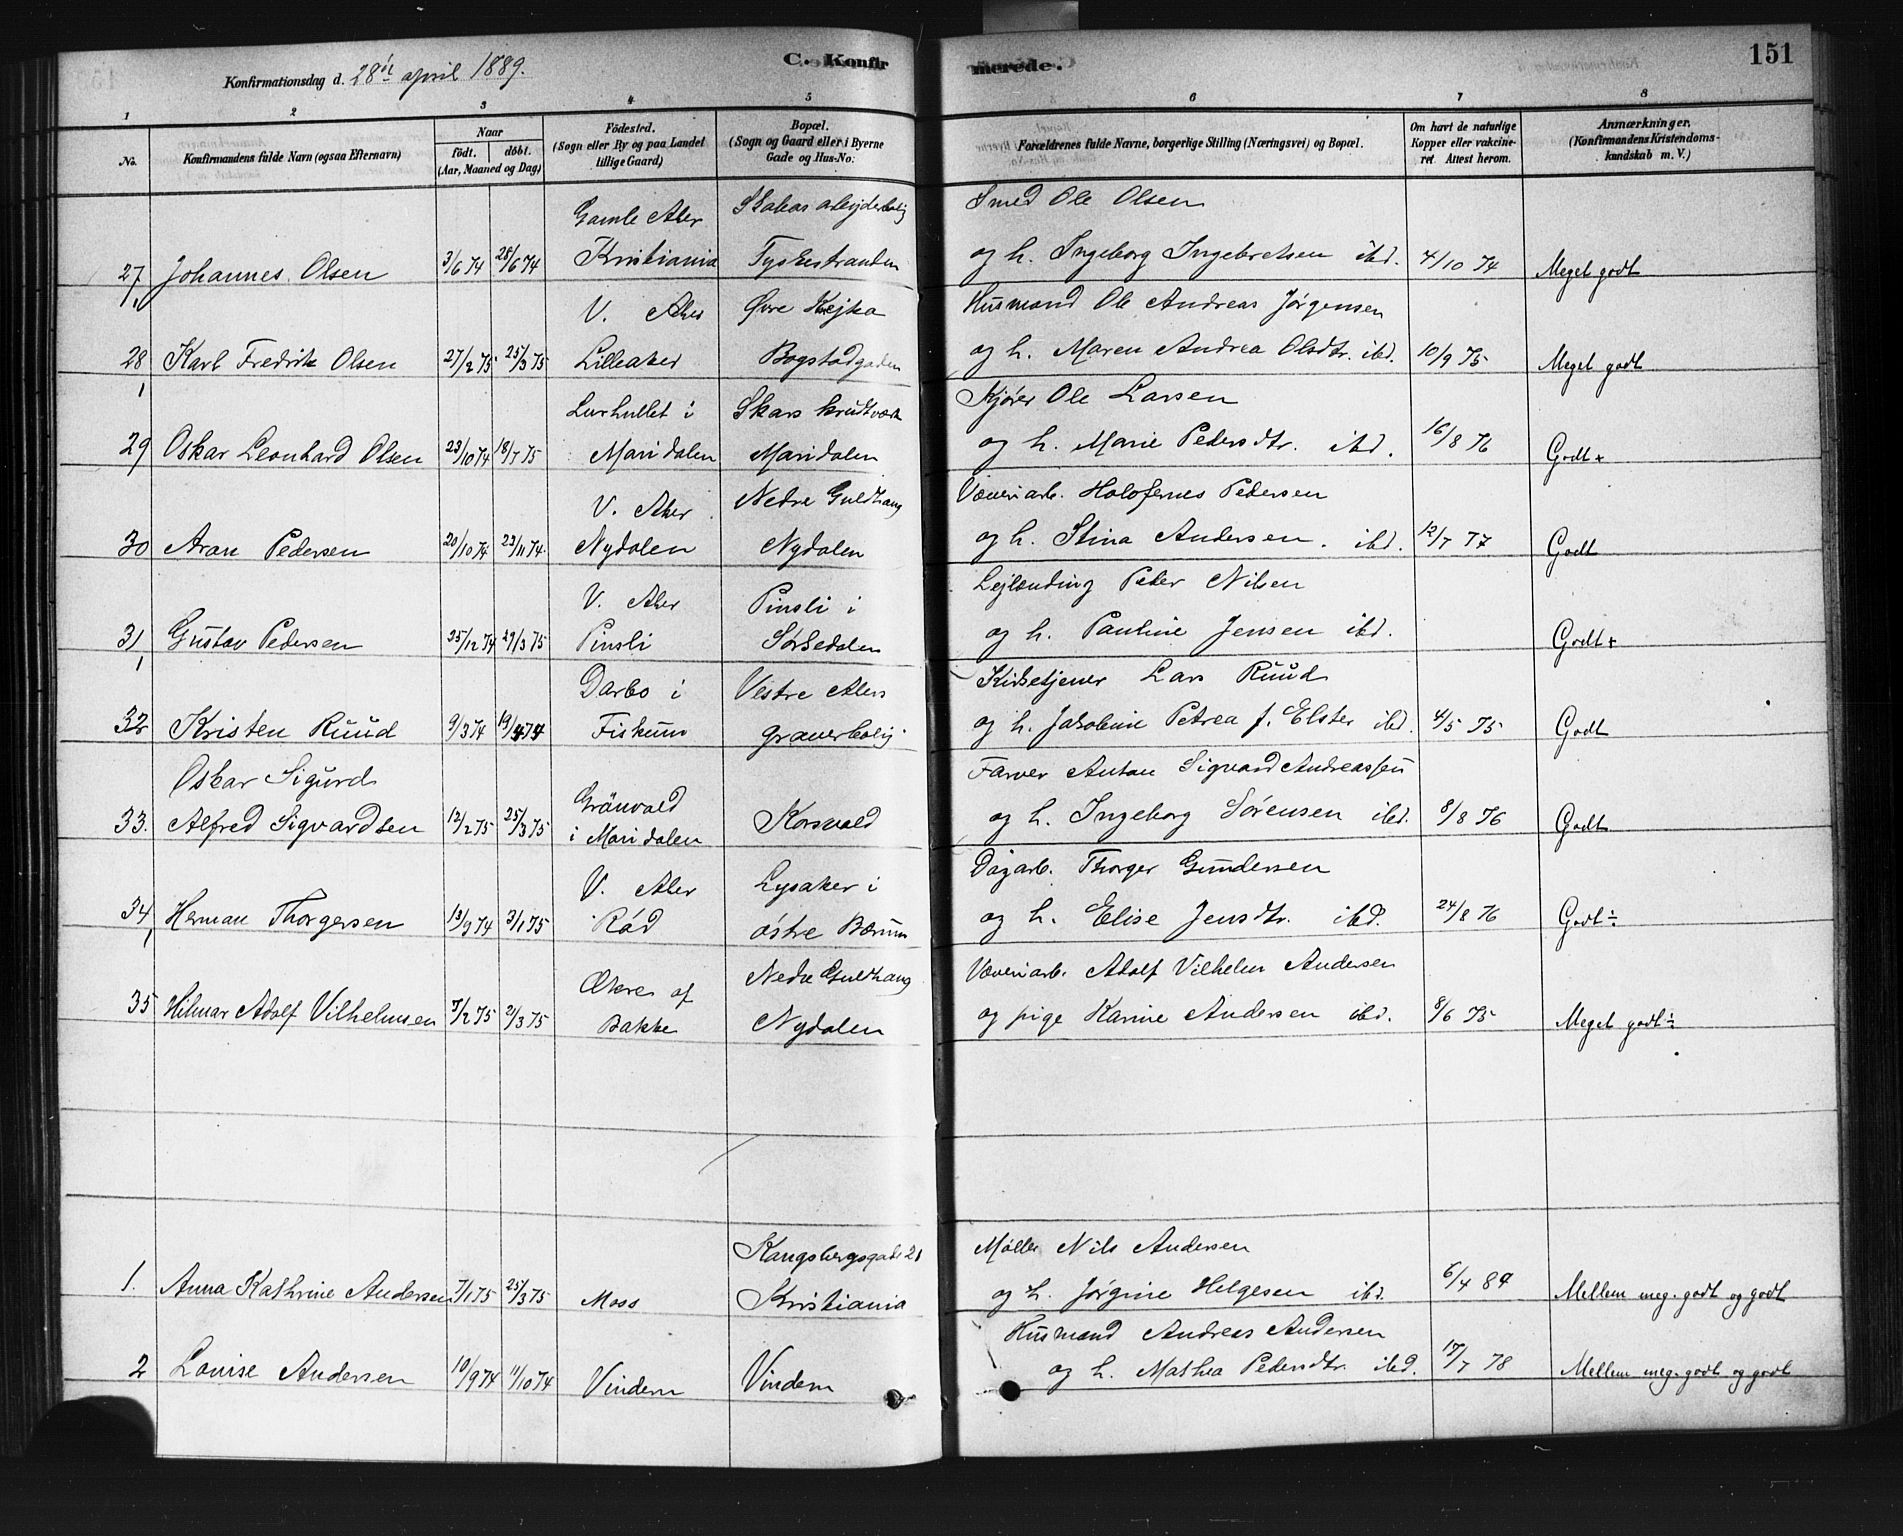 Konfirmationsdag d. 28de april 1889.
C. Konfirmerede.
151
1 2 3 4 5 6 7 8
No.
Konfirmandens fulde Navn (ogsaa Efternavn)
Naar
født. døbt.
(Aar, Maaned og Dag)
Fødested.
(Sogn eller By og paa Landet
tillige Gaard)
Bopæl.
(Sogn og Gaard eller i Byerne
Gade og Hus-No:
Forældrenes fulde Navne, borgerlige Stilling (Næringsvei) og Bopæl.
Om havt de naturlige
Kopper eller vakcine-
ret. Attest herom.
Anmærkninger.
(Konfirmandens Kristendoms-
kundskab m. V.)
Gamle Aker Skabos arbejderbolig Smed Ole Olsen
27 Johannes Olsen 3/6 74 28/6 74 Kristiania Tyskestranden og h. Ingeborg Ingebretsen ibd. 4/10 74 Meget godt
V. Aker Øvre Husmand Ole Andreas Jørgensen
28 Karl Fredrik Olsen 27/2 75 25/3 75 Lilleaker Bogstadgaden og h. Maren Andrea Olsdtr. ibd. 10/9 75 Meget godt
Lurhullet i Skars krudtværk Kjører Ole Larsen
29 Oskar Leonhard Olsen 23/10 74 18/7 75 Maridalen Maridalen og h. Marie Pedersdtr. ibd. 16/8 76 Godt+
V. Aker Nedre Guldhaug Væveriarb. Holofernes Pedersen
30 Aron Pedersen 20/10 74 23/11 74 Nydalen Nydalen og h. Stina Andersen. ibd. 12/7 77 Godt
V. Aker Pinsli i Lejlending Peder Nilsen
31 Gustav Pedersen 25/12 74 29/3 75 Pinsli Sørkedalen og h. Pauline Jensen ibd. Godt+
Darbo i Vestre Akers Kirketjener Lars Ruud
32 Kristen Ruud 9/3 74 19/4 74 Fiskum graverbolig. og h. Jakobine Petrea f. Elster ibd. 4/5 75 Godt
Oskar Sigurd Farver Anton Sigvard Andreassen
33. Alfred Sigvardsen 12/2 75 25/3 75 Grønvold i Maridalen Korsvold og h. Ingeborg Sørensen ibd. 8/8 76 Godt
V. Aker Lysaker i Dagarb. Thorger Gundersen
34 Herman Thorgersen 13/9 74 3/1 75 Rød østre Bærum og h. Elise Jensdtr. ibd. 24/8 76 Godt÷
af Nedre Guldhaug Væveriarb. Adolf Vilhelm Andersen
35 Hilmar Adolf Vilhelmsen 7/2 75 21/3 75 Bakke Nydalen og pige Karine Andersen ibd. 8/6 75 Meget godt÷
Kongsbergsgade 21 Møller Nils Andersen
1. Anna Kathrine Andersen 7/1 75 25/3 75 Moss Kristiania og h. Jørgine Helgesen ibd. 6/4 89 Mellem meg. godt og godt
Husmand Andreas Andersen
2 Louise Andersen 10/9 74 11/10 74 Vindern Vindern og h. Mathea Pedersdtr. ibd. 17/7 78 Mellem meg. godt og godt